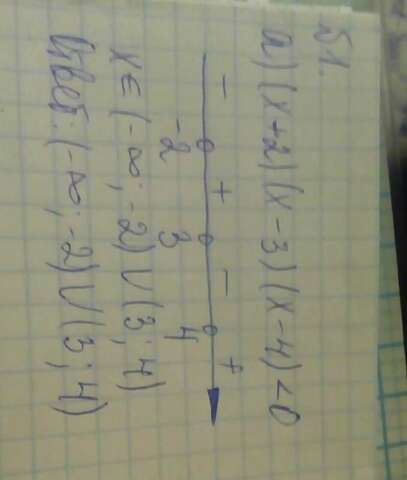 №1.
а) (x+2)(x-3)(x-4)<0
- + - +
-2 3 4
x∈(-∞;-2)∪(3;4)
Ответ: (-∞;-2)∪(3;4)